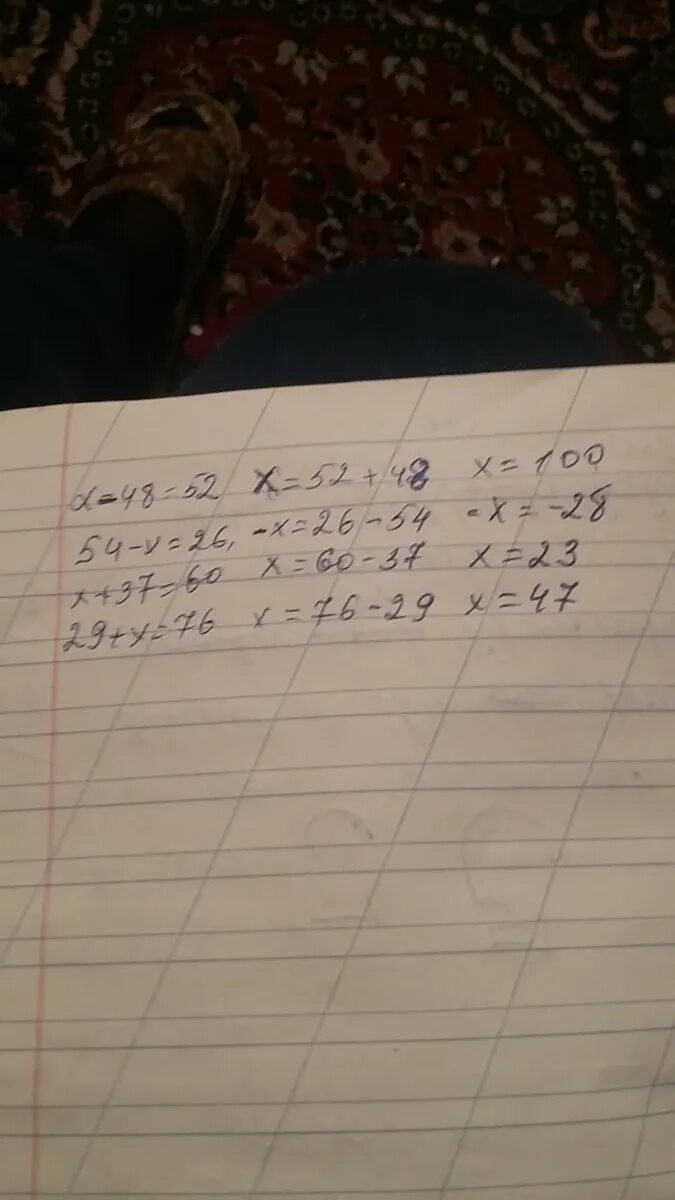 x-48=52 x=52+48 x=100
54-x=26, -x=26-54 -x=-28
x+37=60 x=60-37 x=23
29+x=76 x=76-29 x=47